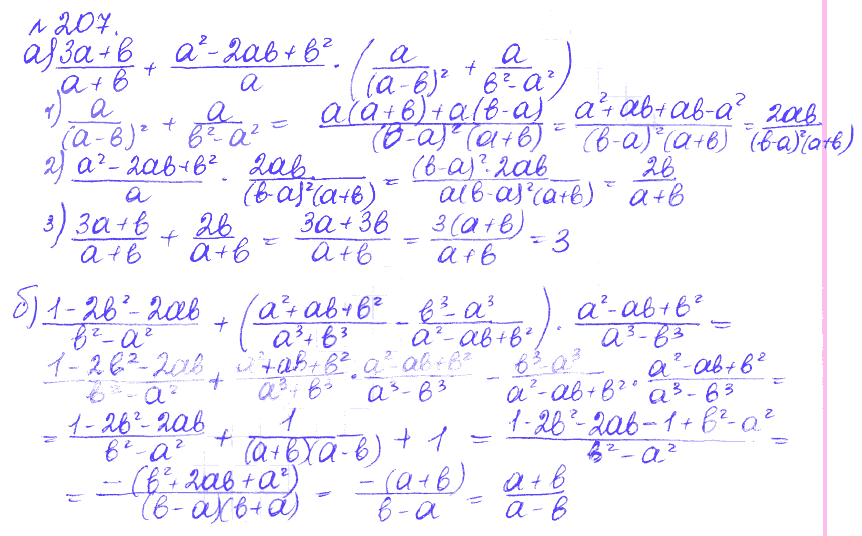 № 207.
а) (3a+b)/(a+b) + (a²-2ab+b²)/a · (a/(a-b)² + a/(b²-a²))
1) a/(a-b)² + a/(b²-a²) = (a(a+b)+a(b-a))/((b-a)²(a+b)) = (a²+ab+ab-a²)/((b-a)²(a+b)) = 2ab/((b-a)²(a+b))
2) (a²-2ab+b²)/a · 2ab/((b-a)²(a+b)) = ((b-a)²·2ab)/(a(b-a)²(a+b)) = 2b/(a+b)
3) (3a+b)/(a+b) + 2b/(a+b) = (3a+3b)/(a+b) = 3(a+b)/(a+b) = 3
б) (1-2b²-2ab)/(b²-a²) + ((a²+ab+b²)/(a³+b³) - (b³-a³)/(a²-ab+b²)) · (a²-ab+b²)/(a³-b³) =
(1-2b²-2ab)/(b²-a²) + (a²+ab+b²)/(a³+b³) · (a²-ab+b²)/(a³-b³) - (b³-a³)/(a²-ab+b²) · (a²-ab+b²)/(a³-b³) =
= (1-2b²-2ab)/(b²-a²) + 1/((a+b)(a-b)) + 1 = (1-2b²-2ab-1+b²-a²)/(b²-a²) =
= -(b²+2ab+a²)/((b-a)(b+a)) = -(a+b)/(b-a) = (a+b)/(a-b)